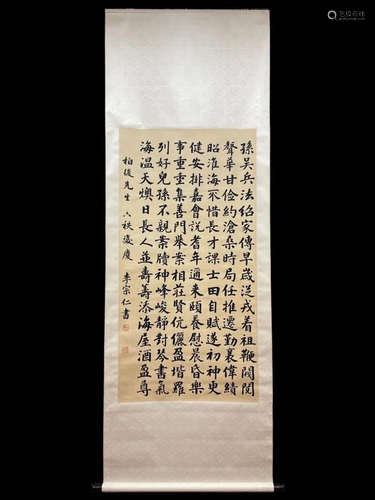 孫吳兵法紹家傳早歲從戎着祖鞭閥閱
聲華甘儉約滄桑時局任推遷勤襄偉績
昭淮海不惜長才課士田自賦遂初神更
健安排嘉會說耆年邇來頤養慰晨昏樂
事重重集善門舉案相莊賢伉儷盈堦羅
列好兒孫不親案牘神峰峻靜對琴書氣
海温天燠日長人並壽籌添海屋酒盈尊
柏 先生 六秩 慶 李宗仁書